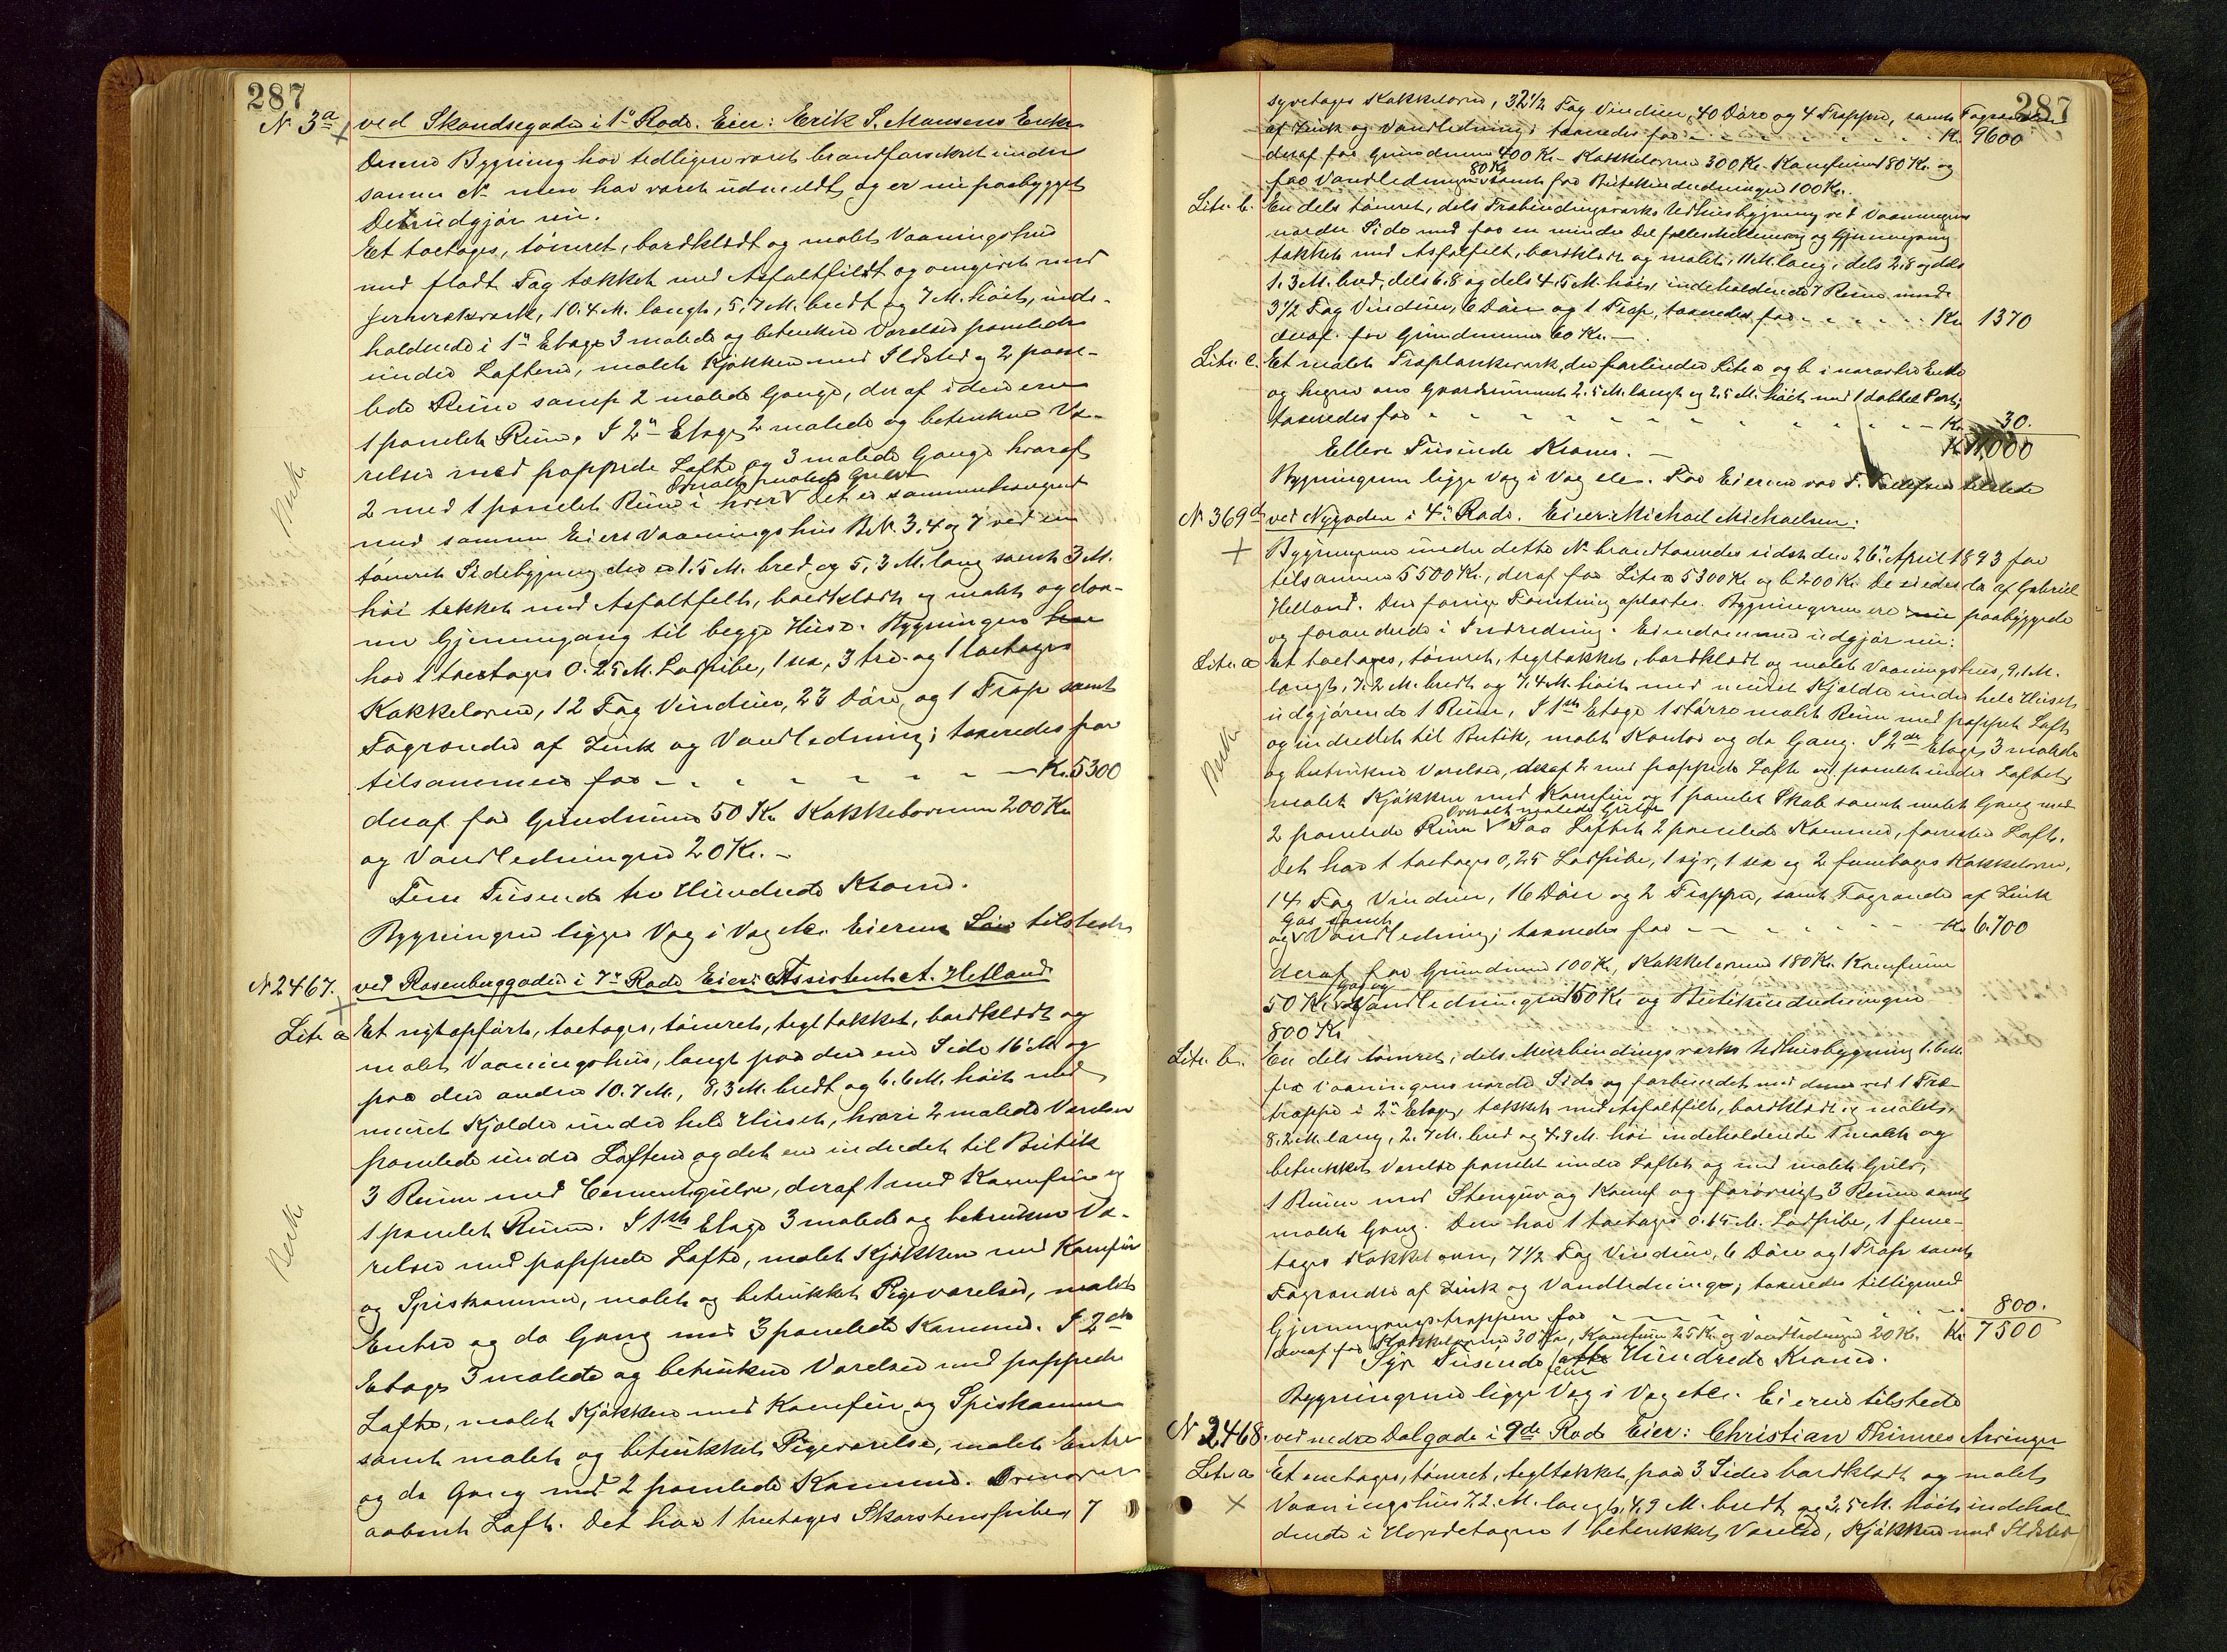 287
N. 3a ved Skandsegaden i 1ste Rode. Eier: Erik S. Monsens Enke
Denne Bygning har tidligere været brandforsikret under
samme No men har været udmeldt og er nu paabygget
Det udgjør nu.
Et toetages, tømret, bordklædt og malet Vaaningshus
med fladt Tag tækket med Asfaltfildt og omgivet med
Jernrækværk, 10.4 M. langt, 5,7 M. bredt og 7 M. høit, inde-
holdende i 1ste Etage 3 malede og betrukne Værelser panelede
under Loftene, malet Kjøkken med Ildsted og 2 pane-
lede Rum samt 2 malede Gange, deraf i den ene
1 panelet Rum. I 2den Etage 2 malede og betrukne Væ-
relser med pappede Lofte og 3 malede Gange hvoraf
Overalt malede Gulve
2 med 1 panelet Rum i hver Det er sammenhængende
med samme Eiers Vaaningshus B.N. 3, 4 og 7 ved en
tømret Sidebygning der er 1.5 M. bred og 5,3 M. lang samt 3 M.
høi tækket med Asfaltfelt, bordklædt og malet og dan-
ner Gjennemgang til begge Huse. Bygningen har
har 1 toetages 0.25 M. Lodpibe, 1 sex, 3 tre- og 1 toetages
Kakkelovne, 12 Fag Vinduer, 23 Døre og 1 Trap samt
Tagrender af Zink og Vandledning; taxeredes for
tilsammen for - - - - - Kr. 5300
deraf for Grundmuren 50 Kr Kakkelovnene 200 Kr
og Vandledningen 20 Kr. -
Fem Tusende tre Hundrede Kroner.
Bygningen ligger Væg i Væg etc. Eieren tilstede
N 2467. ved Rosenberggaden i 7de Rode Eier: Assistent A. Helland
Litr a Et nyt opført, toetages, tømret, tegltækket, bordklædt og
malet Vaaningshus, langt paa den ene Side 16 M. og
paa den anden 10.7 M., 8,3 M. bredt og 6.6 M. høit med
muret Kjælder under hele Huset, hvori 2 malede Værelser
panelede under Loftene og det ene indredet til Butik
3 Rum med Cementgulve, deraf 1 med Komfur og
1 panelet Rum. I 1ste Etage 3 malede og betrukne Væ-
relser med pappede Lofte, malet Kjøkken med Komfur
og Spiskammer, malet og betrukket Pigeværelse, malet
Entre og do Gang med 3 panelede Kammer. I 2den
Etage 3 malede og betrukne Værelser med pappede
Lofte, malet Kjøkken med Komfur og Spiskammer
samt malet og betrukket Pigeværelse, malet Entre
og do Gang med 2 panelede Kammer. Ovenover
aabent Loft. Det har 1 treetages Skorstenspibe, 7
287
syvetages Kakkelovne, 32 1/2 Fag Vinduer, 40 Døre og 4 Trapper, samt Tagrender
af Zink og Vandledning; taxeredes for - - - - Kr. 9600
deraf for Grundmuren 400 Kr - Kakkelovnene 300 Kr. Komfurene 180 Kr. og
80 Kr
for Vandledningen samt for Butikindredningen 100 Kr.
Litr. b. En dels tømret, dels Træbindingsværks Udhusbygning ved Vaaningens
nordre Side med for en mindre Del fælles Mellemvæg og Gjennemgang
tækket med Asfaltfelt, bordklædt og malet, 11 M. lang, dels 2,8 og dels
1.3 M. bred, dels 6.8 og dels 4.5 M. høi, indeholdende 7 Rum med
3 1/2 Fag Vinduer, 6 Døre og 1 Trap, taxeredes for - - - - Kr 1370
deraf for Grundmuren 60 Kr. -
Litr. c. Et malet Træplankeværk, der forbinder Litr a og b i nordre Ende
og hegner om Gaardsrummet 2.5 M. langt og 2,5 M. høit med 1 dobbel Port;
taxeredes for - - - - - Kr. 30.
Elleve Tusinde Kroner. - Kr 11,000
Bygningerne ligge Væg i Væg etc. For Eieren var T. Tollefsen tilstede
N. 369d ved Nygaden i 4de Rode. Eier: Michael Michaelsen.
Bygningerne under dette No brandtaxeredes sidst den 26de April 1893 for
tilsammen 5500 Kr., deraf for Litr a 5300 Kr og b 200 Kr. De eiedes da af Gabriel
Helland. Den forrige Forretning opløstes. Bygningerne ere nu paabyggede
og forandrede i Indredning. Eiendommen udgjør nu:
Litr. a Et toetages, tømret, tegltækket, bordklædt og malet Vaaningshus, 9,1 M.
langt, 7,2 M. bredt og 7,4 M. høit med muret Kjælder under hele Huset
udgjørende 1 Rum, I 1ste Etage 1 større malet Rum med pappet Loft
og indredet til Butik, malet Kontor og do Gang. I 2den Etage 3 malede
og betrukne Værelser, deraf 2 med pappede Lofte og 1 panelet under Loftet,
malet Kjøkken med Komfur og 1 panelet Skab samt malet Gang med
Overalt malede Gulve
2 panelede Rum Paa Loftet 2 panelede Kammer, forresten Loft.
Det har 1 toetages 0,25 Lodpibe, 1 syv, 1 sex og 2 femetages Kakkelovne,
14 Fag Vinduer, 16 Døre og 2 Trapper, samt Tagrender af Zink
Gas samt
og Vandledning; taxeredes for - - - - Kr 6.700
deraf for Grundmuren 100 Kr, Kakkelovnene 180 Kr. Komfuren
Gas og
50 Kr. Vandledningen 150 Kr og Butikindredningen
800 Kr
Litr. b. En dels tømret, dels Murbindingsværks Udhusbygning 1.6 M.
fra Vaaningens nordre Side og forbundet med denne ved 1 Træ-
trappe i 2den Etage, tækket med Asfaltfilt, bordklædt og malet,
8.2 M. lang, 2.7 M. bred og 4.9 M. høi indeholdende 1 malet og
betrukket Værelse panelet under Loftet og med malet Gulv,
1 Rum med Stengulv og Komf og forøvrigt 3 Rum samt
malet Gang. Den har 1 toetages 0.15 M. Lodpibe, 1 feme-
tages Kakkelovn, 7 1/2 Fag Vinduer, 6 Døre og 1 Trap samt
Tagrender af Zink og Vandledning; taxeredes tilligemed
Gjennemgangstrappen for - - - - 800.
deraf for Kakkelovnen 30 Kr, Komfuren 25 Kr. og Vandledningen 20 Kr. Kr 7500
Syv Tusinde otte Hundrede Kroner.
fem
Bygningerne ligge Væg i Væg etc. Eieren tilstede
N 2468. ved nedre Dalgade i 9de Rode Eier: Christian Thimres Arvinger
Litr. a Et enetages, tømret, tegltækket, paa 3 Sider bordklædt og malet
Vaaningshus 7.2. M. langt, 4,9 M. bredt og 3,5 M. høit indehol-
dende i Hovedetagen 1 betrukket Værelse, Kjøkken med Ildsted